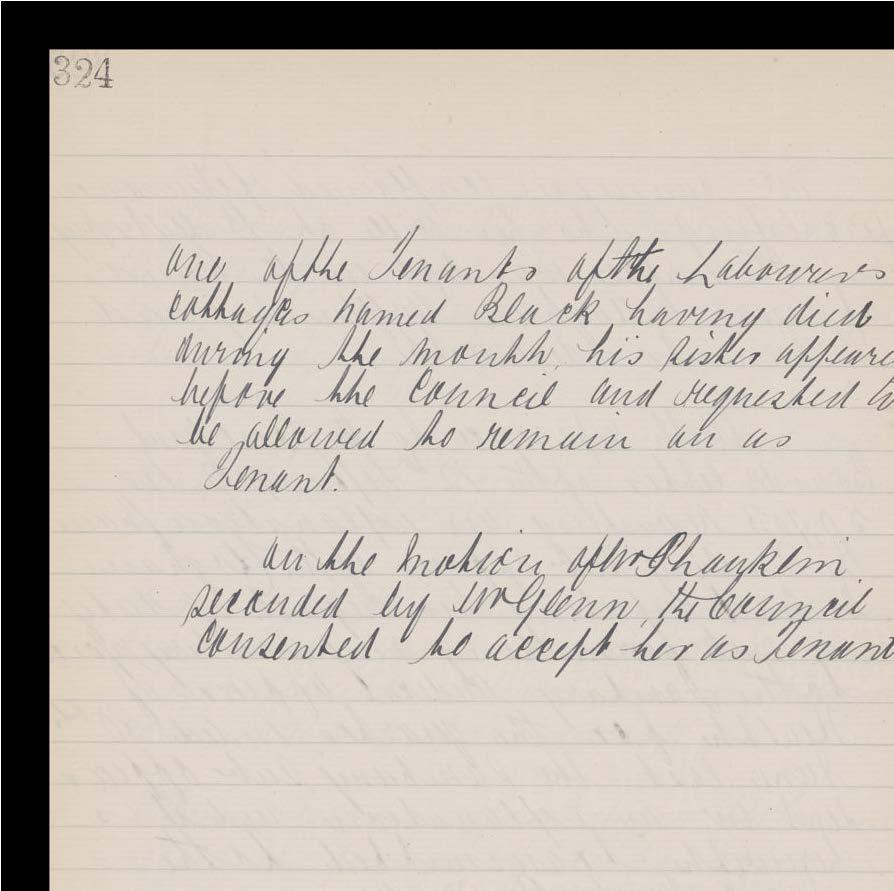 324
one of the Tenants of the Labourers
cottages named Black having died
during the month, his sister appeare
before the Council and requested to
be allowed to remain on as
Tenant.
on the motion of Mr Shanklin
seconded by Mr Glenn, the Council
consented to accept her as Tenant